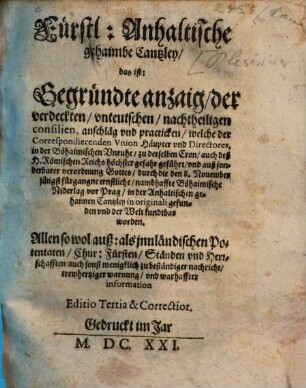 Fürstl: Anhaltische
gehaimbe Cantzley/
das ist:
Gegründte anzaig/der
verdeckten/vnteutschen/nachtheiligen
consilien, anschläg vnd practicken/welche der
Correspondierenden Vnion Häupter vnd Directores,
in der Böhaimischen Vnruhe/zu derselben Cron/auch deß
H. Römischen Reichs höchster gefahr geführt/vnd auß son-
derbarer verordnung Gottes/durch die den 8. Nouember
jüngst fürgangne ernstliche/namhhaffte Böhaimische
Niderlag vor Prag/in der Anhaltischen ge-
haimen Cantzley in originali gefun-
den vnd der Welt kundtbar
worden.
Allen so wol auß: als innländischen Po-
tentaten/Chur: Fürsten/Ständen vnd Herr-
schafften auch sonst menigklich zu beständiger nachricht/
trewhertziger warnung/vnd warhaffter
information
Editio Tertia & Correctior.
Gedruckt im Jar
M. DC. XXI.